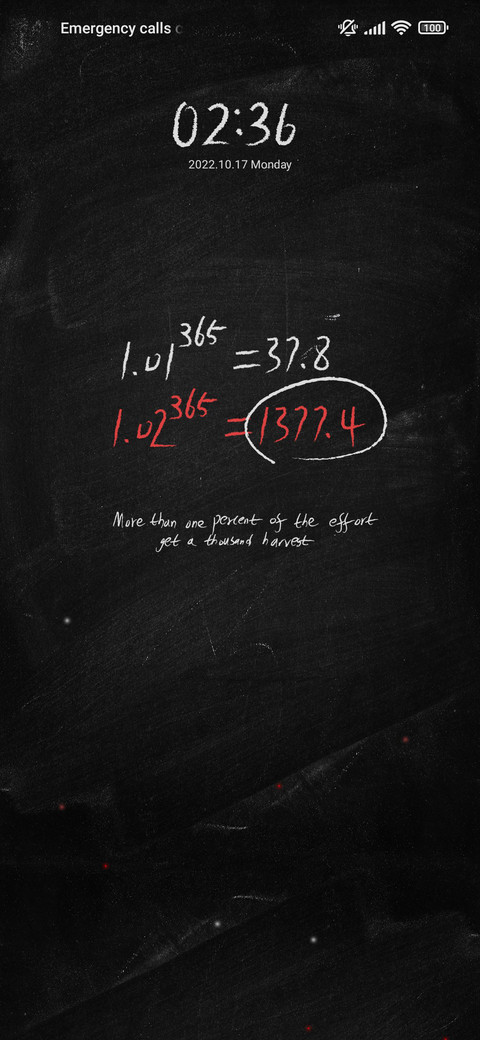 Emergency calls
100
02:36
2022.10.17 Monday
1.01³⁶⁵ = 37.8
1.02³⁶⁵ = 1377.4
More than one percent of the effort
get a thousand harvest